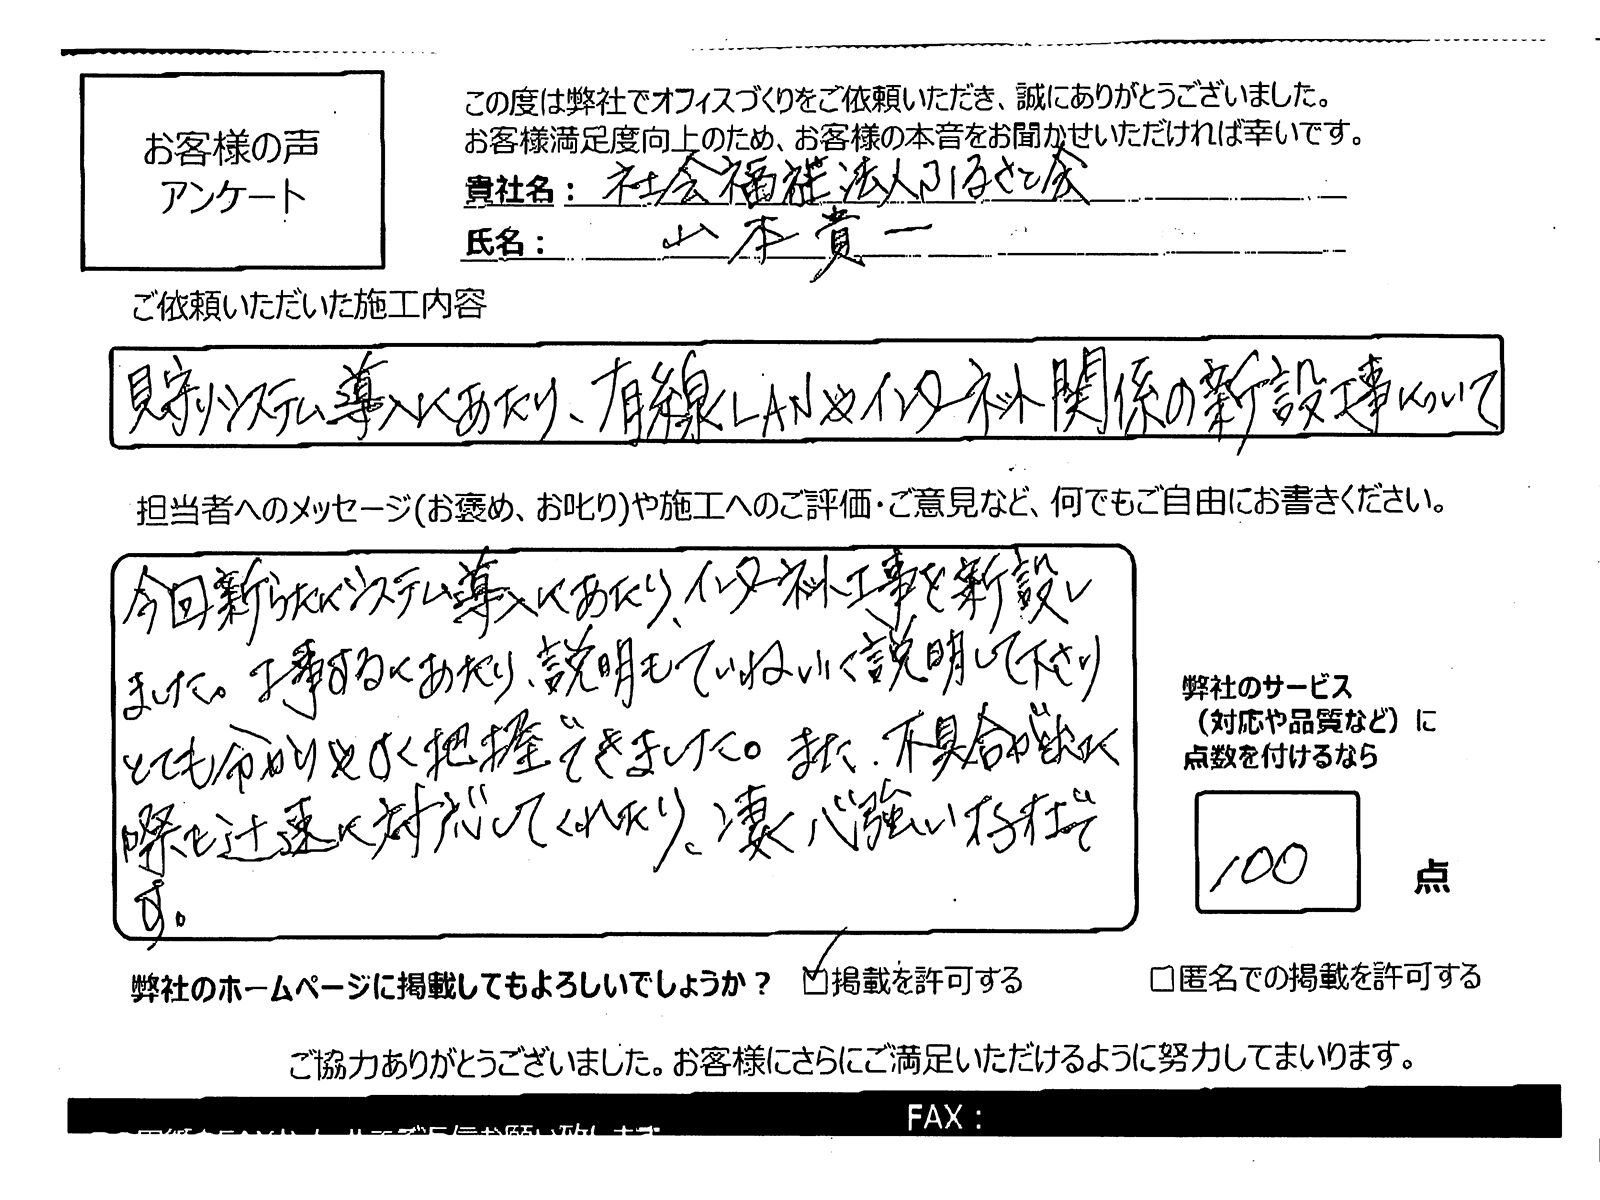 お客様の声
アンケート
この度は弊社でオフィスづくりをご依頼いただき、誠にありがとうございました。
お客様満足度向上のため、お客様の本音をお聞かせいただければ幸いです。
貴社名： 社会福祉法人ふるさと会
氏名： 山本貴一
ご依頼いただいた施工内容
見守りシステム導入にあたり、有線LANやインターネット関係の新設工事について
担当者へのメッセージ(お褒め、お叱り)や施工へのご評価・ご意見など、何でもご自由にお書きください。
今回新らたにシステム導入にあたり、インターネット工事を新設し
ました。工事するにあたり、説明もていねいに説明して下さり
とても分かりやすく把握できました。また、不具合が出た
際も迅速に対応してくれたり、凄く心強い存在で
す。
弊社のサービス
（対応や品質など）に
点数を付けるなら
100 点
弊社のホームページに掲載してもよろしいでしょうか？ ☑掲載を許可する □匿名での掲載を許可する
ご協力ありがとうございました。お客様にさらにご満足いただけるように努力してまいります。
FAX：